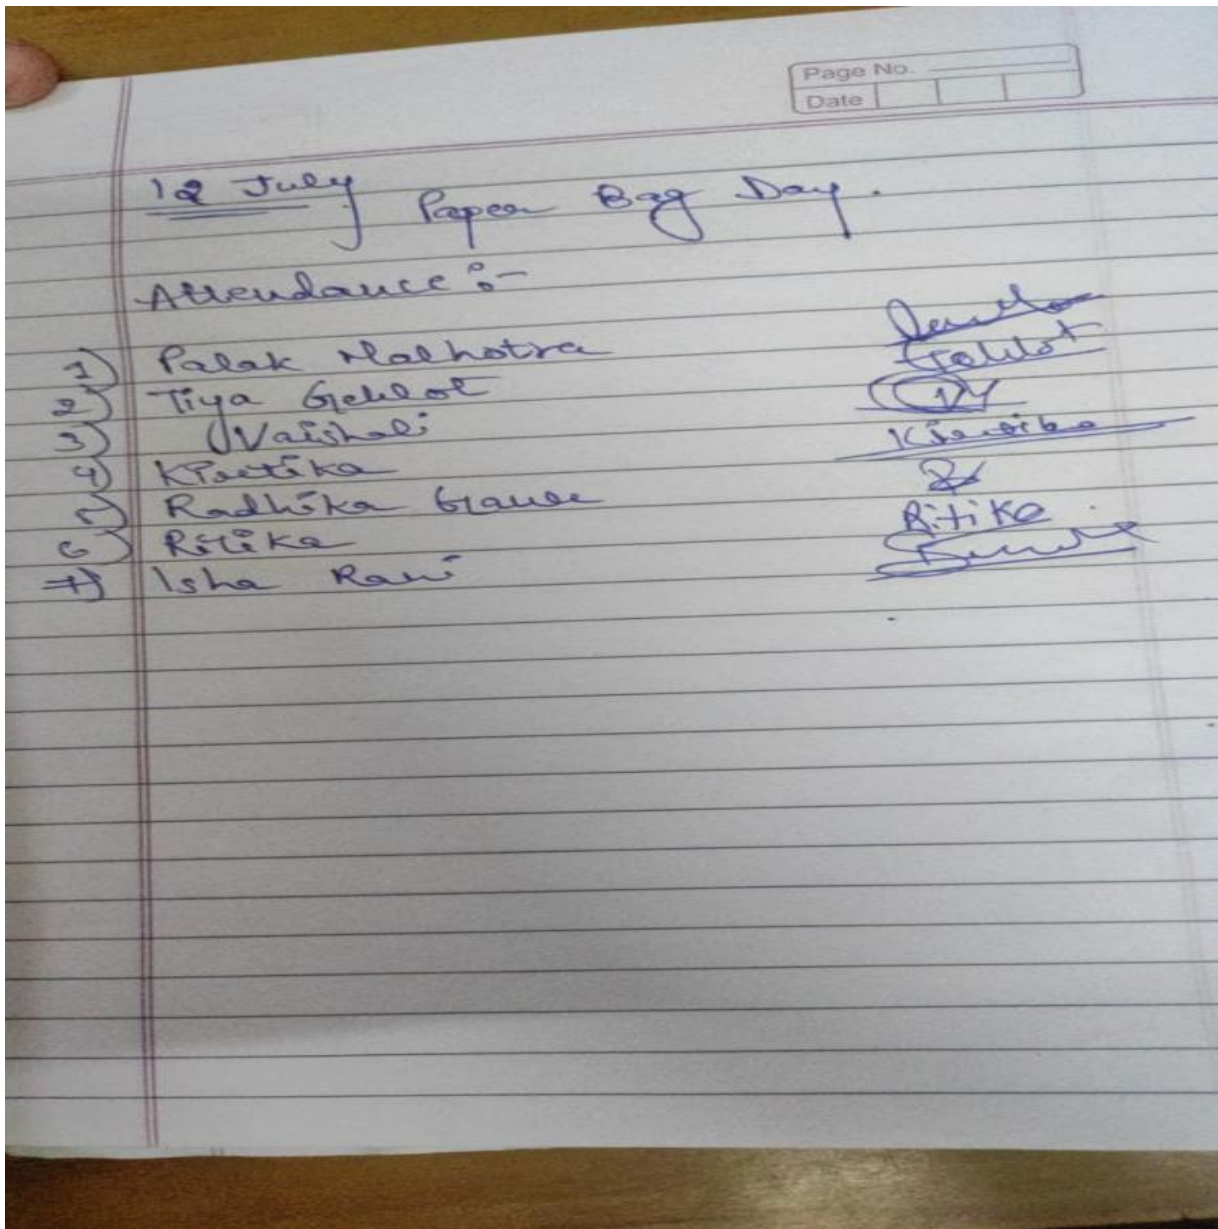 Page No.
Date
12 July Paper Bag Day.
Attendance :-
1) Palak Malhotra
2) Tiya Gehlot Gehlot
3) Vaishali
4) Kirtika
5) Radhika
6) Ritika Ritika
7) Isha Rani